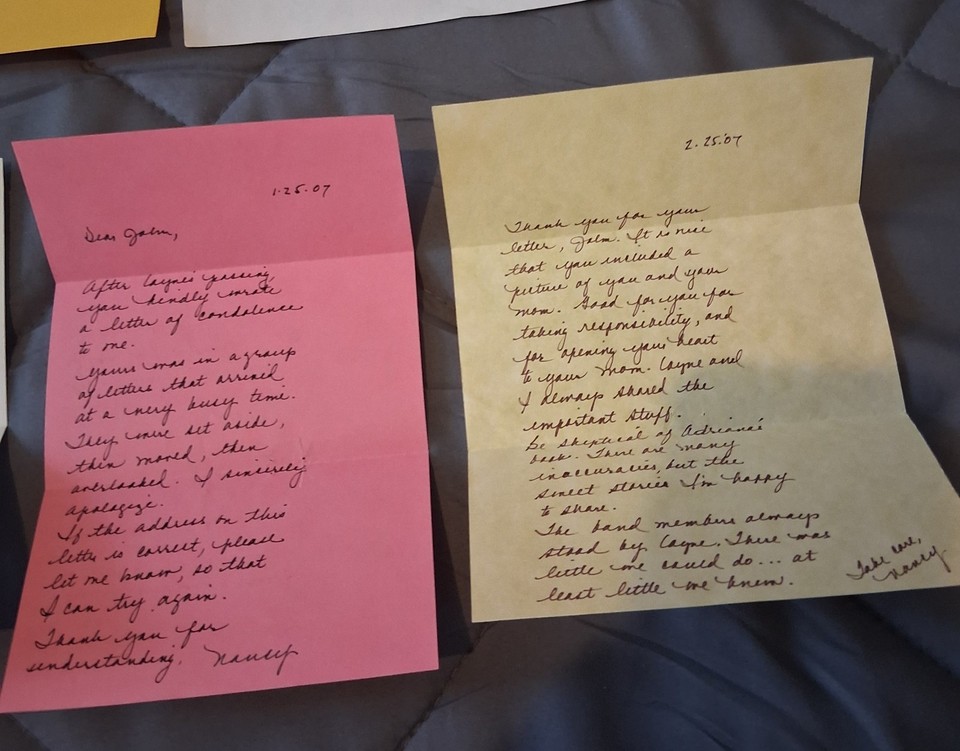 1-25-07
Dear John,
After Layne's passing,
you kindly wrote
a letter of condolence
to me.
Yours was in a group
of letters that arrived
at a very busy time.
They were set aside,
then moved, then
overlooked. I sincerely
apologize.
If the address on this
letter is correct, please
let me know, so that
I can try again.
Thank you for
understanding. Nancy
2-25-07
Thank you for your
letter, John. It is nice
that you included a
picture of you and your
mom. Good for you for
taking responsibility, and
for opening your heart
to your mom. Layne and
I always shared the
important stuff.
Be skeptical of Adriana's
book. There are many
inaccuracies, but the
sweet stories I'm happy
to share.
The band members always
stood by Layne. There was
little we could do... at
least little we knew.
Take care,
Nancy